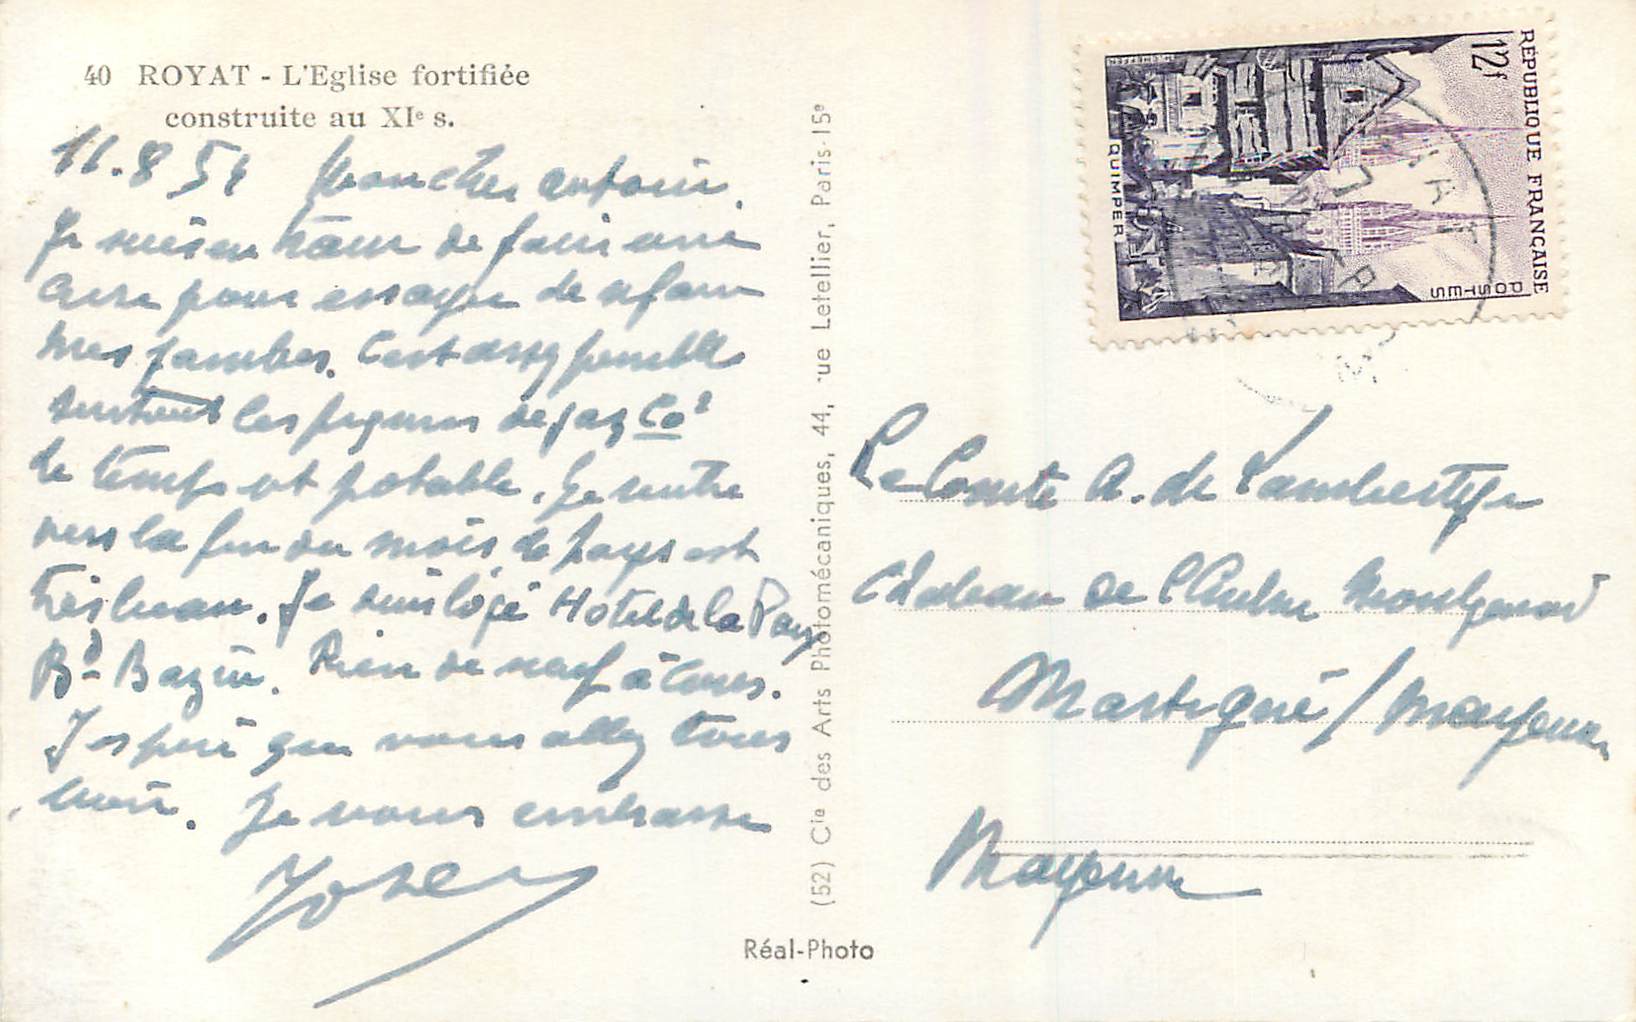 40 ROYAT - L'Eglise fortifiée
construite au XIe s.
11.8 54 Mon cher Antoine.
Je suis en train de faire une
Cure pour essayer de refaire
mes jambes. C'est assez penible
surtout les piqures de gaz Co²
le temps est potable. Je rentre
vers la fin du mois. Le pays est
très beau. Je suis logé Hotel de la Paix
Bd Bazin. Rien de neuf à
J'espère que vous allez tous
bien. Je vous embrasse
(52) Cie des Arts Photomécaniques, 44, rue Letellier, Paris-15e
Réal-Photo
REPUBLIQUE FRANÇAISE
12f
POSTES
QUIMPER
Le Comte A. de Lambertye
Chateau de l'Aulne
Martigné / Mayenne
Mayenne